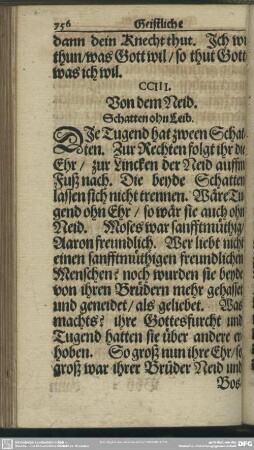 756 Geistliche
dann dein Knecht thut. Ich wil
thun/was Gott wil/so thut Gott
was ich wil.
CCIII.
Von dem Neid.
Schatten ohn Leid.
DJe Tugend hat zween Schat-
ten. Zur Rechten folgt ihr die
Ehr/ zur Lincken der Neid auffm
Fuß nach. Die beyde Schatten
lassen sich nicht trennen. Wäre Tu-
gend ohn Ehr/so wär sie auch ohn
Neid. Moses war sanfftmüthig/
Aaron freundlich. Wer liebt nicht
einen sanfftmüthigen freundlichen
Menschen? noch wurden sie beyde
von ihren Brüdern mehr gehasset
und geneidet/als geliebet. Was
machts? ihre Gottesfurcht und
Tugend hatten sie über andere er-
hoben. So groß nun ihre Ehr/so
groß war ihrer Brüder Neid und
Bos-
DFG